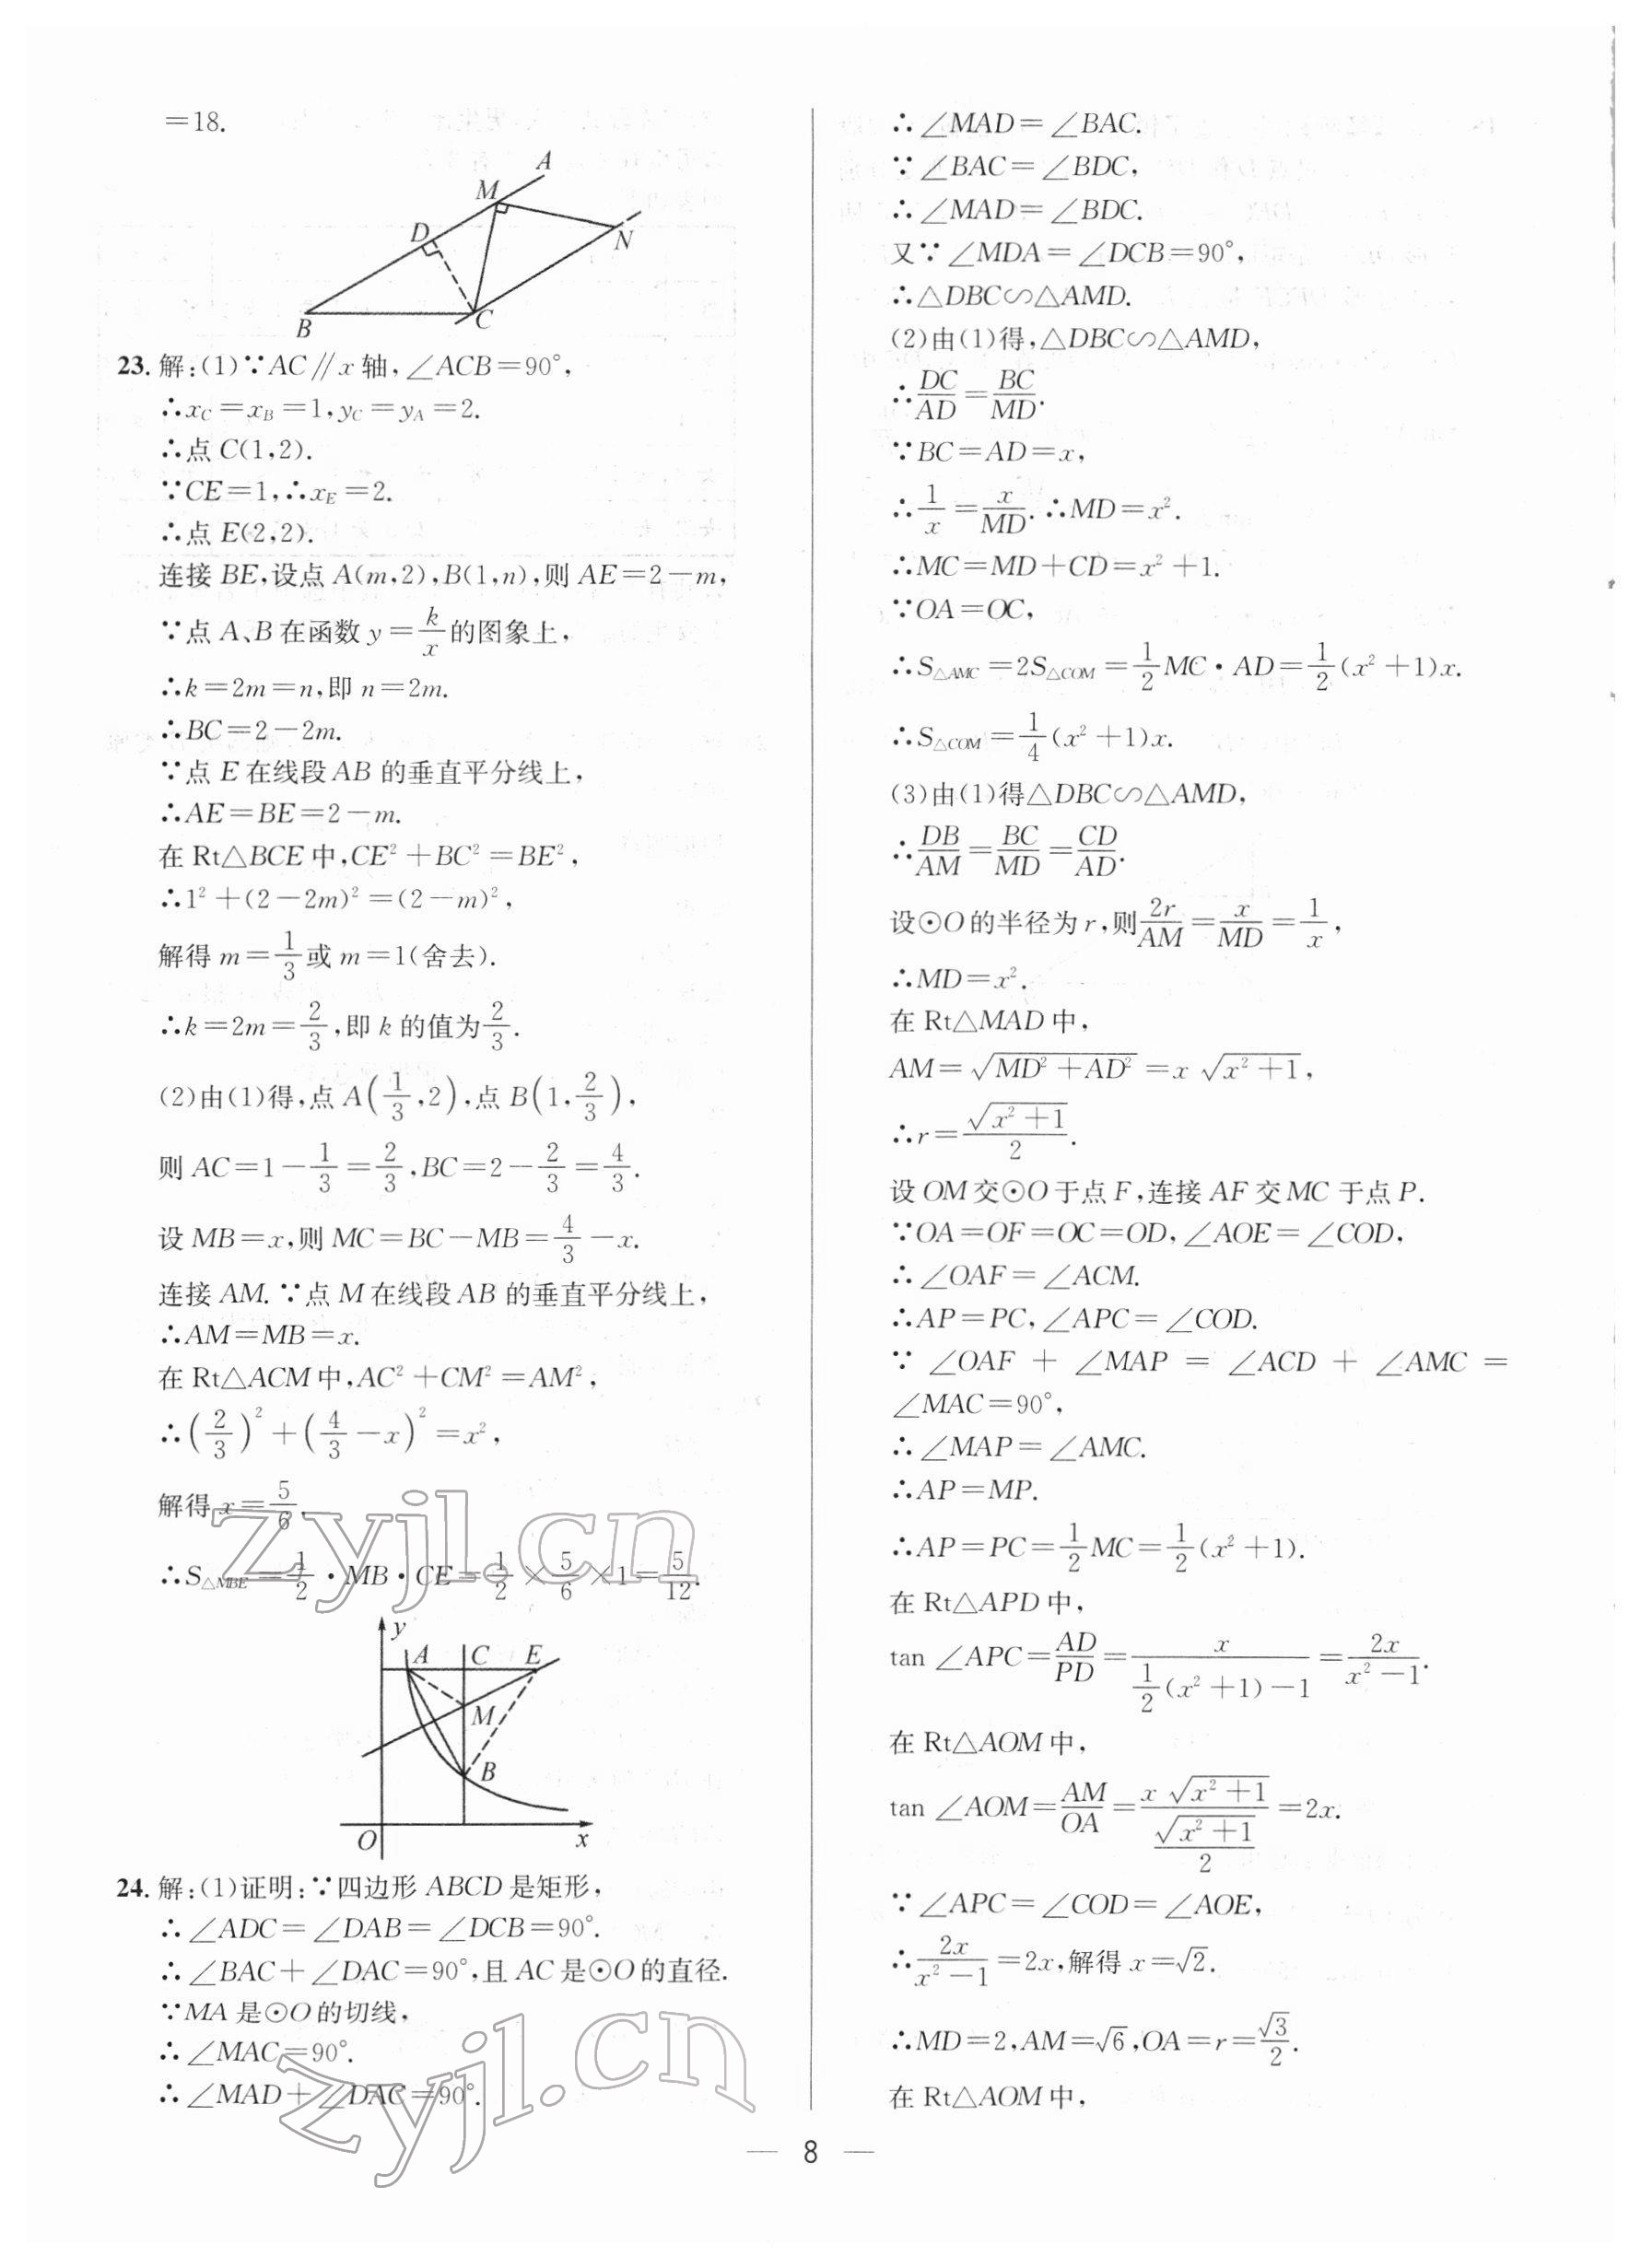 =18.
A
M
D
N
B
C
23. 解:(1)∵AC∥x轴,∠ACB=90°,
∴x_C=x_B=1,y_C=y_A=2.
∴点C(1,2).
∵CE=1,∴x_E=2.
∴点E(2,2).
连接BE,设点A(m,2),B(1,n),则AE=2-m,
∵点A、B在函数y=k/x的图象上,
∴k=2m=n,即n=2m.
∴BC=2-2m.
∵点E在线段AB的垂直平分线上,
∴AE=BE=2-m.
在Rt△BCE中,CE²+BC²=BE²,
∴1²+(2-2m)²=(2-m)²,
解得m=1/3或m=1(舍去).
∴k=2m=2/3,即k的值为2/3.
(2)由(1)得,点A(1/3,2),点B(1,2/3),
则AC=1-1/3=2/3,BC=2-2/3=4/3.
设MB=x,则MC=BC-MB=4/3-x.
连接AM.∵点M在线段AB的垂直平分线上,
∴AM=MB=x.
在Rt△ACM中,AC²+CM²=AM²,
∴(2/3)²+(4/3-x)²=x²,
解得x=5/6.
∴S△MBE=1/2·MB·CE=1/2×5/6×1=5/12.
y
A C E
M
B
O x
24. 解:(1)证明:∵四边形ABCD是矩形,
∴∠ADC=∠DAB=∠DCB=90°.
∴∠BAC+∠DAC=90°,且AC是⊙O的直径.
∵MA是⊙O的切线,
∴∠MAC=90°.
∴∠MAD+∠DAC=90°.
∴∠MAD=∠BAC.
∵∠BAC=∠BDC,
∴∠MAD=∠BDC.
又∵∠MDA=∠DCB=90°,
∴△DBC∽△AMD.
(2)由(1)得,△DBC∽△AMD,
∴DC/AD=BC/MD.
∵BC=AD=x,
∴1/x=x/MD.∴MD=x².
∴MC=MD+CD=x²+1.
∵OA=OC,
∴S△AMC=2S△COM=1/2MC·AD=1/2(x²+1)x.
∴S△COM=1/4(x²+1)x.
(3)由(1)得△DBC∽△AMD,
∴DB/AM=BC/MD=CD/AD.
设⊙O的半径为r,则2r/AM=x/MD=1/x,
∴MD=x².
在Rt△MAD中,
AM=√(MD²+AD²)=x√(x²+1),
∴r=√(x²+1)/2.
设OM交⊙O于点F,连接AF交MC于点P.
∵OA=OF=OC=OD,∠AOE=∠COD,
∴∠OAF=∠ACM.
∴AP=PC,∠APC=∠COD.
∵∠OAF+∠MAP=∠ACD+∠AMC=
∠MAC=90°,
∴∠MAP=∠AMC.
∴AP=MP.
∴AP=PC=1/2MC=1/2(x²+1).
在Rt△APD中,
tan∠APC=AD/PD=x/(1/2(x²+1)-1)=2x/(x²-1).
在Rt△AOM中,
tan∠AOM=AM/OA=x√(x²+1)/(√(x²+1)/2)=2x.
∵∠APC=∠COD=∠AOE,
∴2x/(x²-1)=2x,解得x=√2.
∴MD=2,AM=√6,OA=r=√3/2.
在Rt△AOM中,
— 8 —
zyjl.cn
zyjl.cn